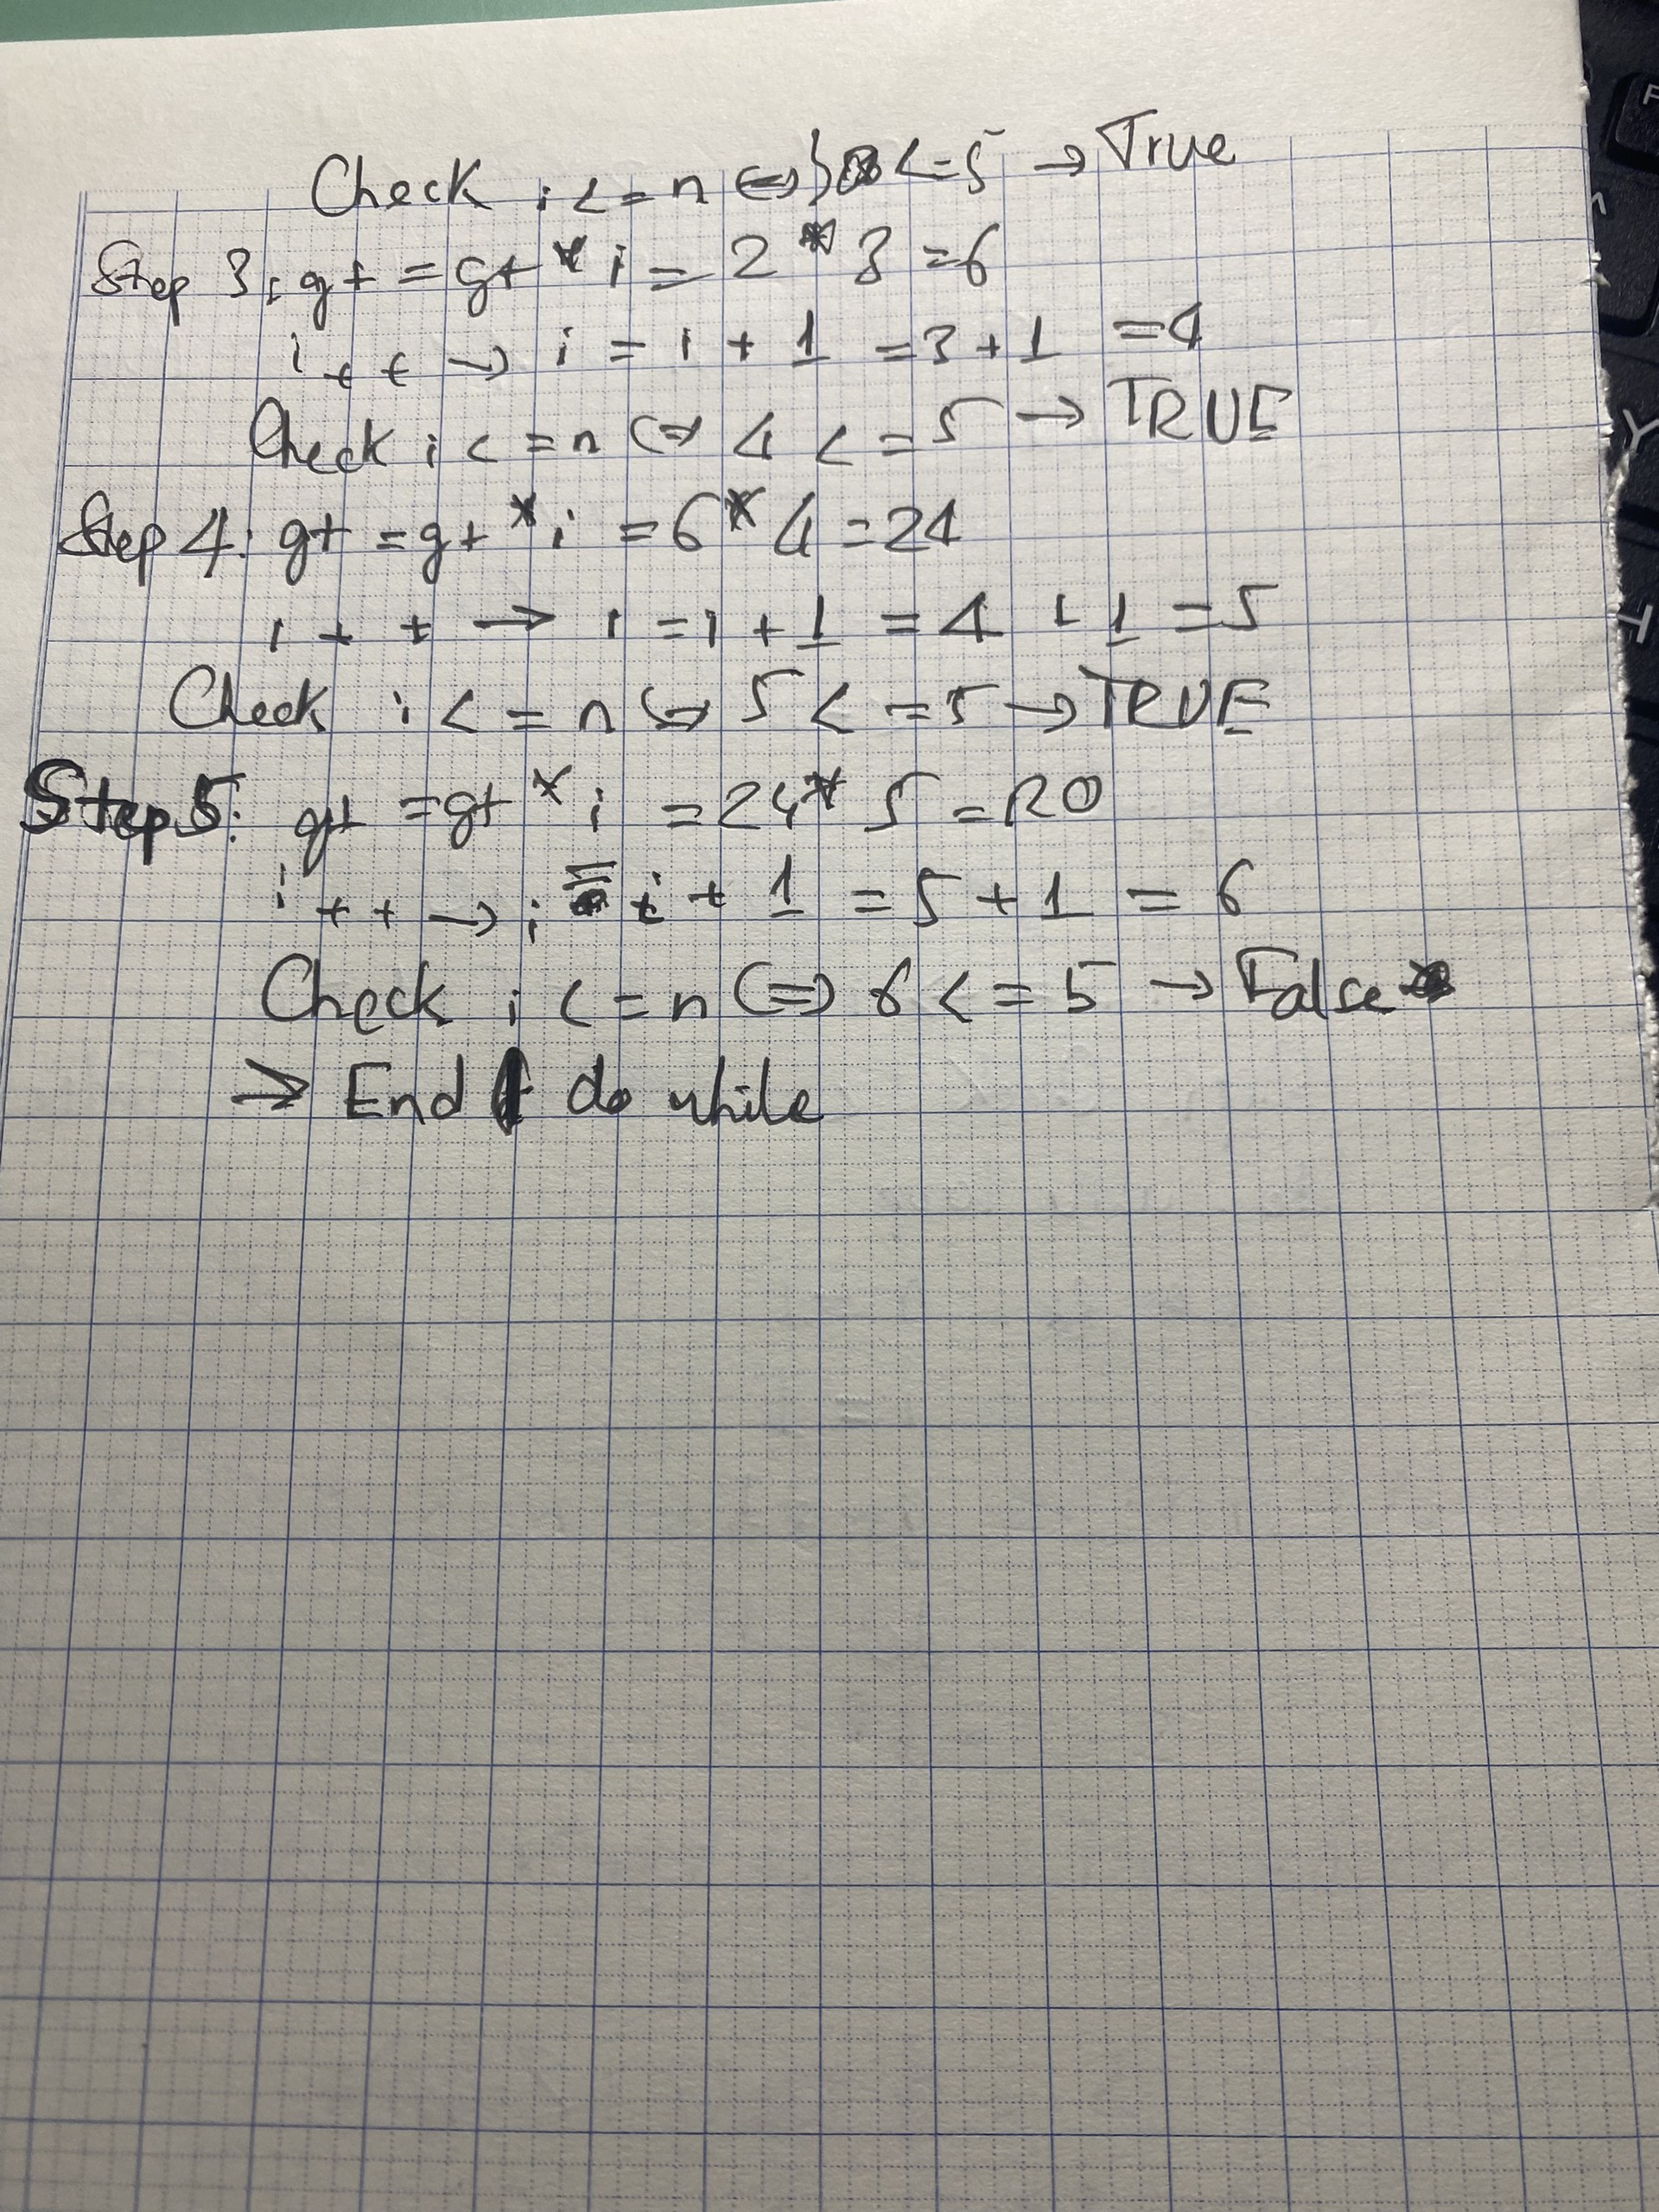 Check i <= n <=> 3 <= 5 → True
Step 3: gt = gt * i = 2 * 3 = 6
i++ → i = i + 1 = 3 + 1 = 4
Check i <= n <=> 4 <= 5 → TRUE
Step 4: gt = gt * i = 6 * 4 = 24
i++ → i = i + 1 = 4 + 1 = 5
Check i <= n <=> 5 <= 5 → TRUE
Step 5: gt = gt * i = 24 * 5 = 120
i++ → i = i + 1 = 5 + 1 = 6
Check i <= n <=> 6 <= 5 → False
=> End do while